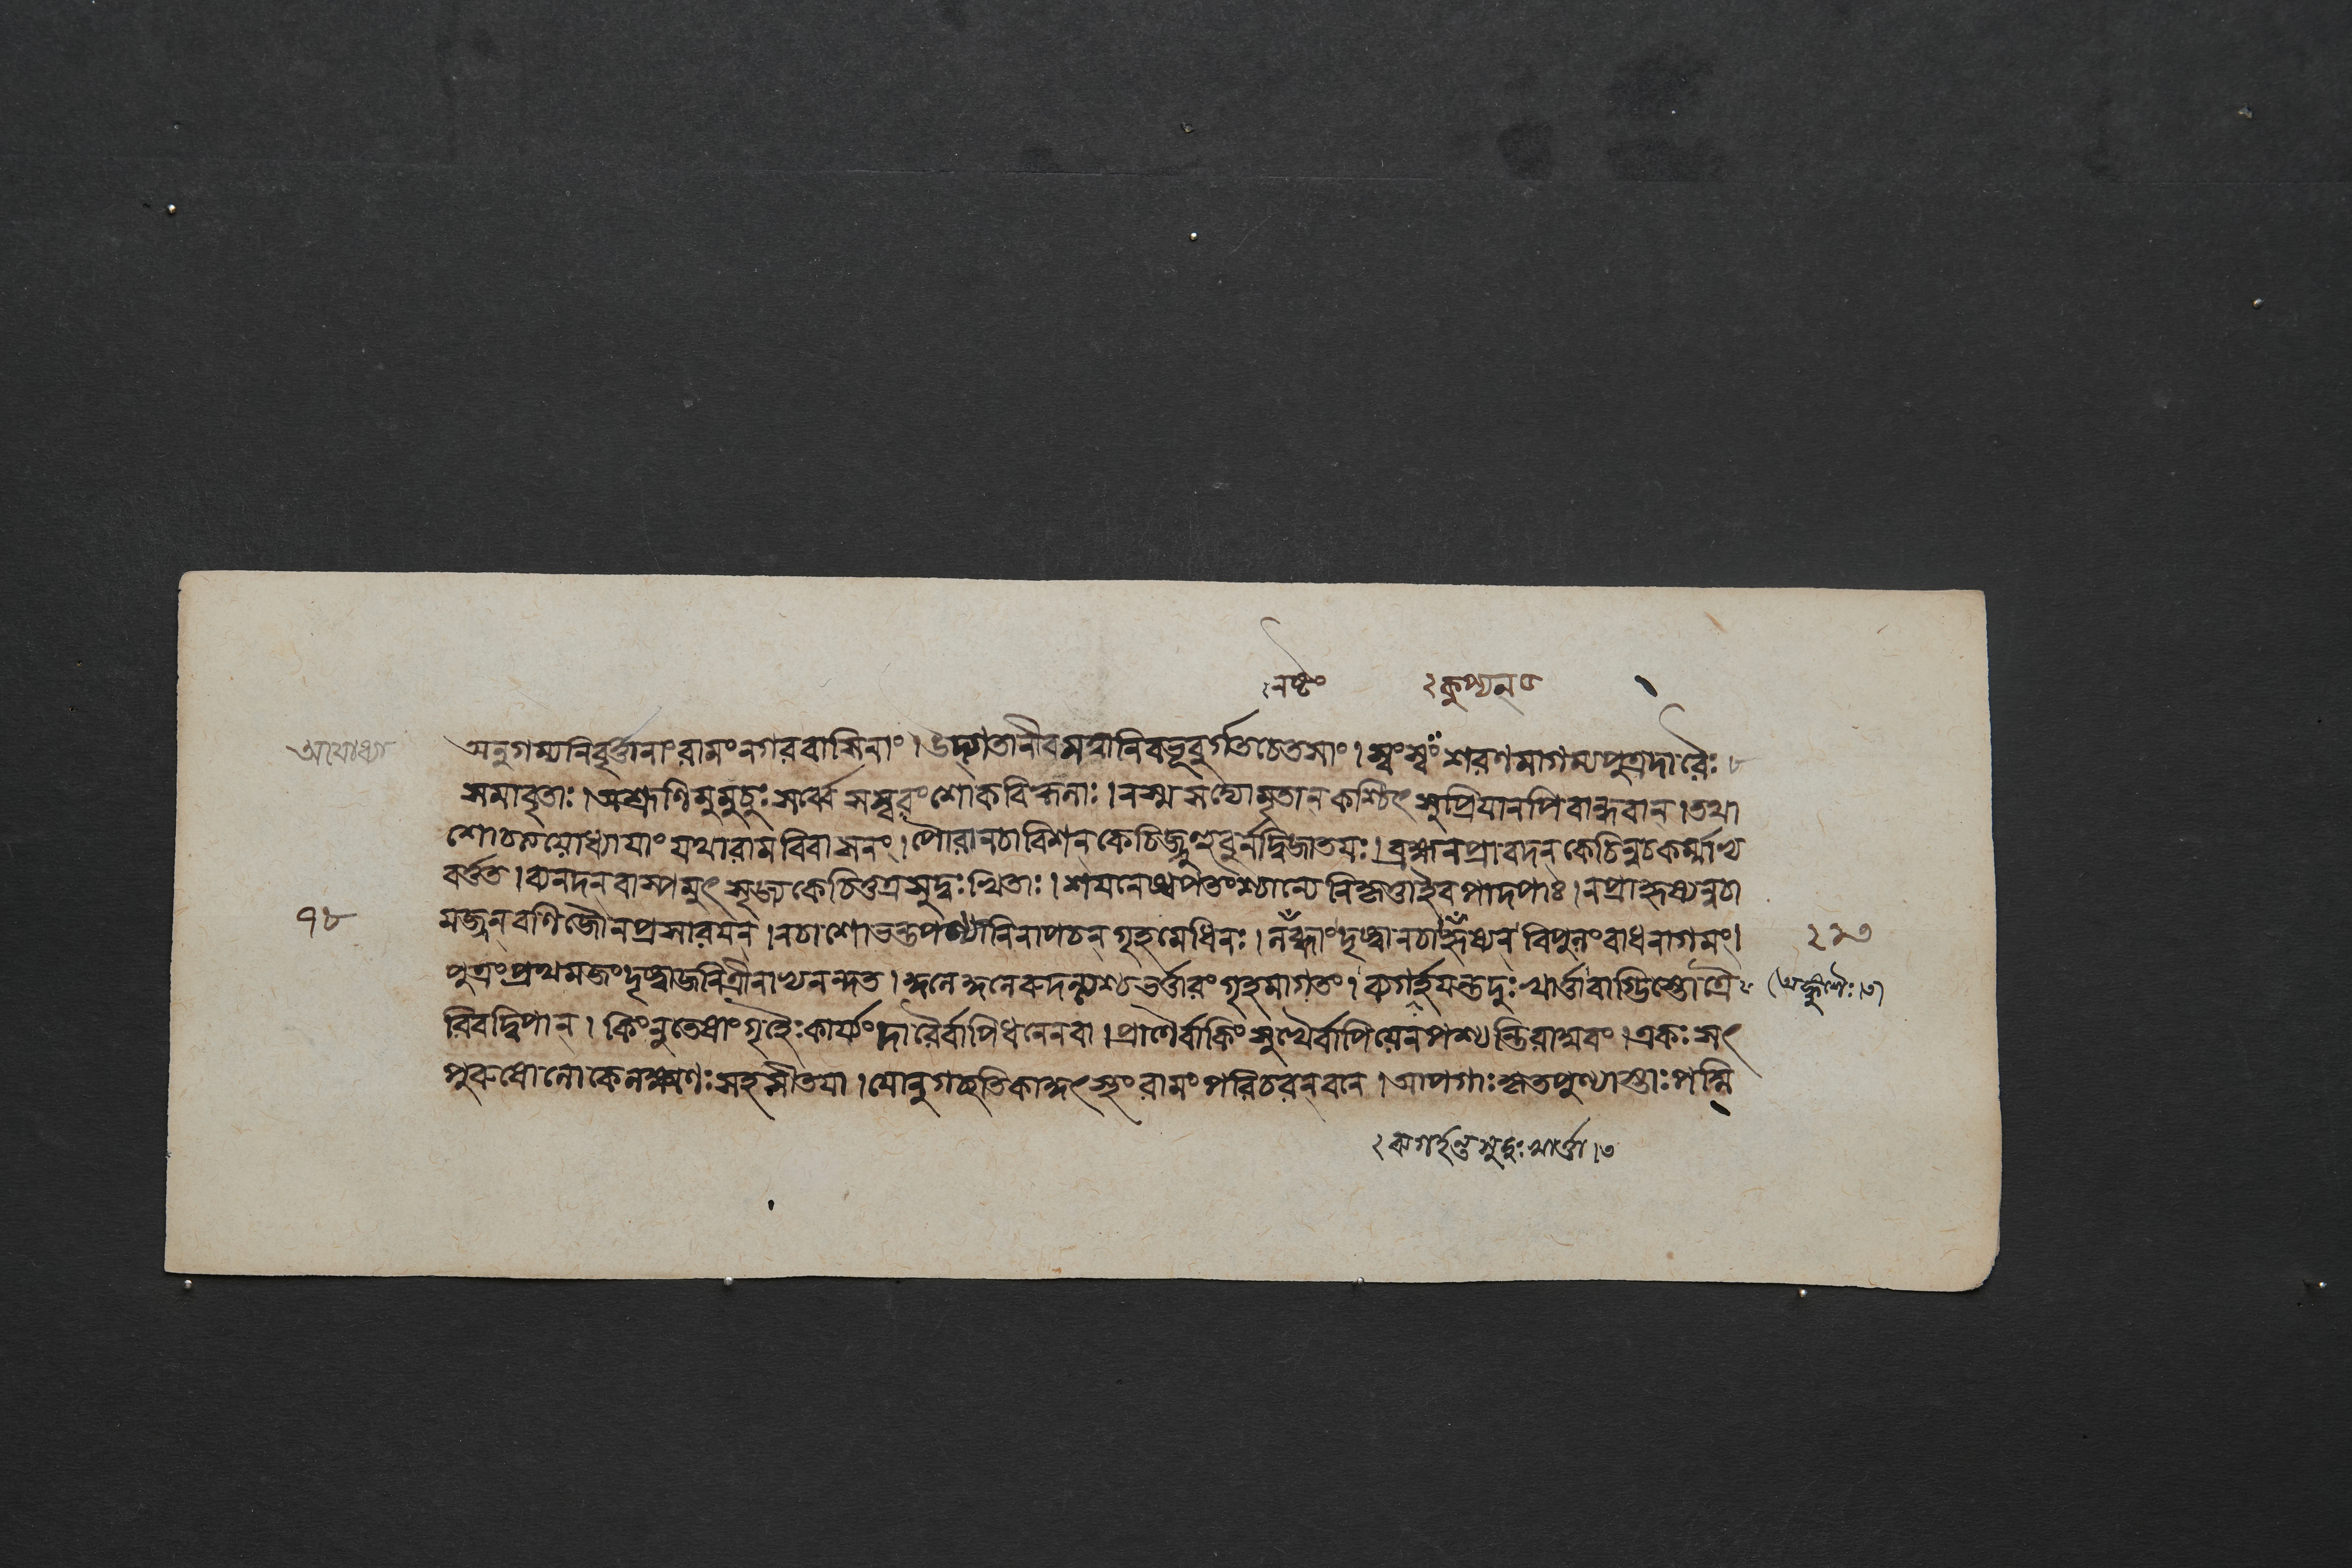 নষ্টং ২কুপ্যন৫
অযোধ্যা অনুগম্যনিবৃর্ত্তানাংরামংনগরবাসিনাং।উদ্গতানীবসত্বানিবভূবুর্গতচেতসাং।স্বংস্বং শরণমাগম্যপুত্রদারৈঃ
সমাবৃতাঃ।অশ্রূণিমুমুচুঃসর্ব্বেসস্বরংশোকবিহ্বলাঃ। মৃতান কশ্চিৎ সুপ্রিয়ানপিবান্ধবান।তথা
শোচন্নযোধ্যাযাং যথারামবিবাসনং।পৌরানচাবিশন কেচিজ্জুহুবুর্নদ্বিজাতযঃ।ব্রহ্মনপ্রাবদন কেচিন্নচকর্ম্মাণ্য
বর্ত্তত।ব্যনদন বাস্পমুৎ সৃজ্য কেচিত্তত্রসুদুঃখিতাঃ।শযনেষ্বপতংশ্চান্যে নিকৃত্তাইবপাদপাঃ।নপ্রাহৃষ্যন্নচা
১৮ মজ্জনবণিজৌনপ্রসারযন।নচাশোভন্তপণ্যানিনাপচন গৃহমেধিনঃ।নষ্টং দৃষ্ট্বানচাহৃষ্যন বিপুলংবাধনাগমং।
পুত্রংপ্রথমজংদৃষ্ট্বাজনিত্রীনাভ্যনন্দত।কুলেকুলেরুদন্ত্যশ্চভর্ত্তারংগৃহমাগতং।ব্যগর্হযন্তদুঃখার্ত্তাবাগ্ভিস্তোত্রৈ (অঙ্কুশৈঃ।৩)
রিবদ্বিপান। কিংনুতেষাংগৃহৈঃকার্য্যং দারৈর্বাপিধনেনবা।প্রাণৈর্বাকিংসুখৈর্বাপিযেনপশ্যন্তিরাঘবং।একঃসৎ
পুরুষোলোকেলক্ষ্মণঃসহসীতযা।যোনুগচ্ছতিকাকুৎস্থংরামংপরিচরন্বনে।আপগাঃকৃতপুণ্যাস্তাঃপদ্মি
২ব্যগর্হন্তসুদুঃখার্ত্তা।৩